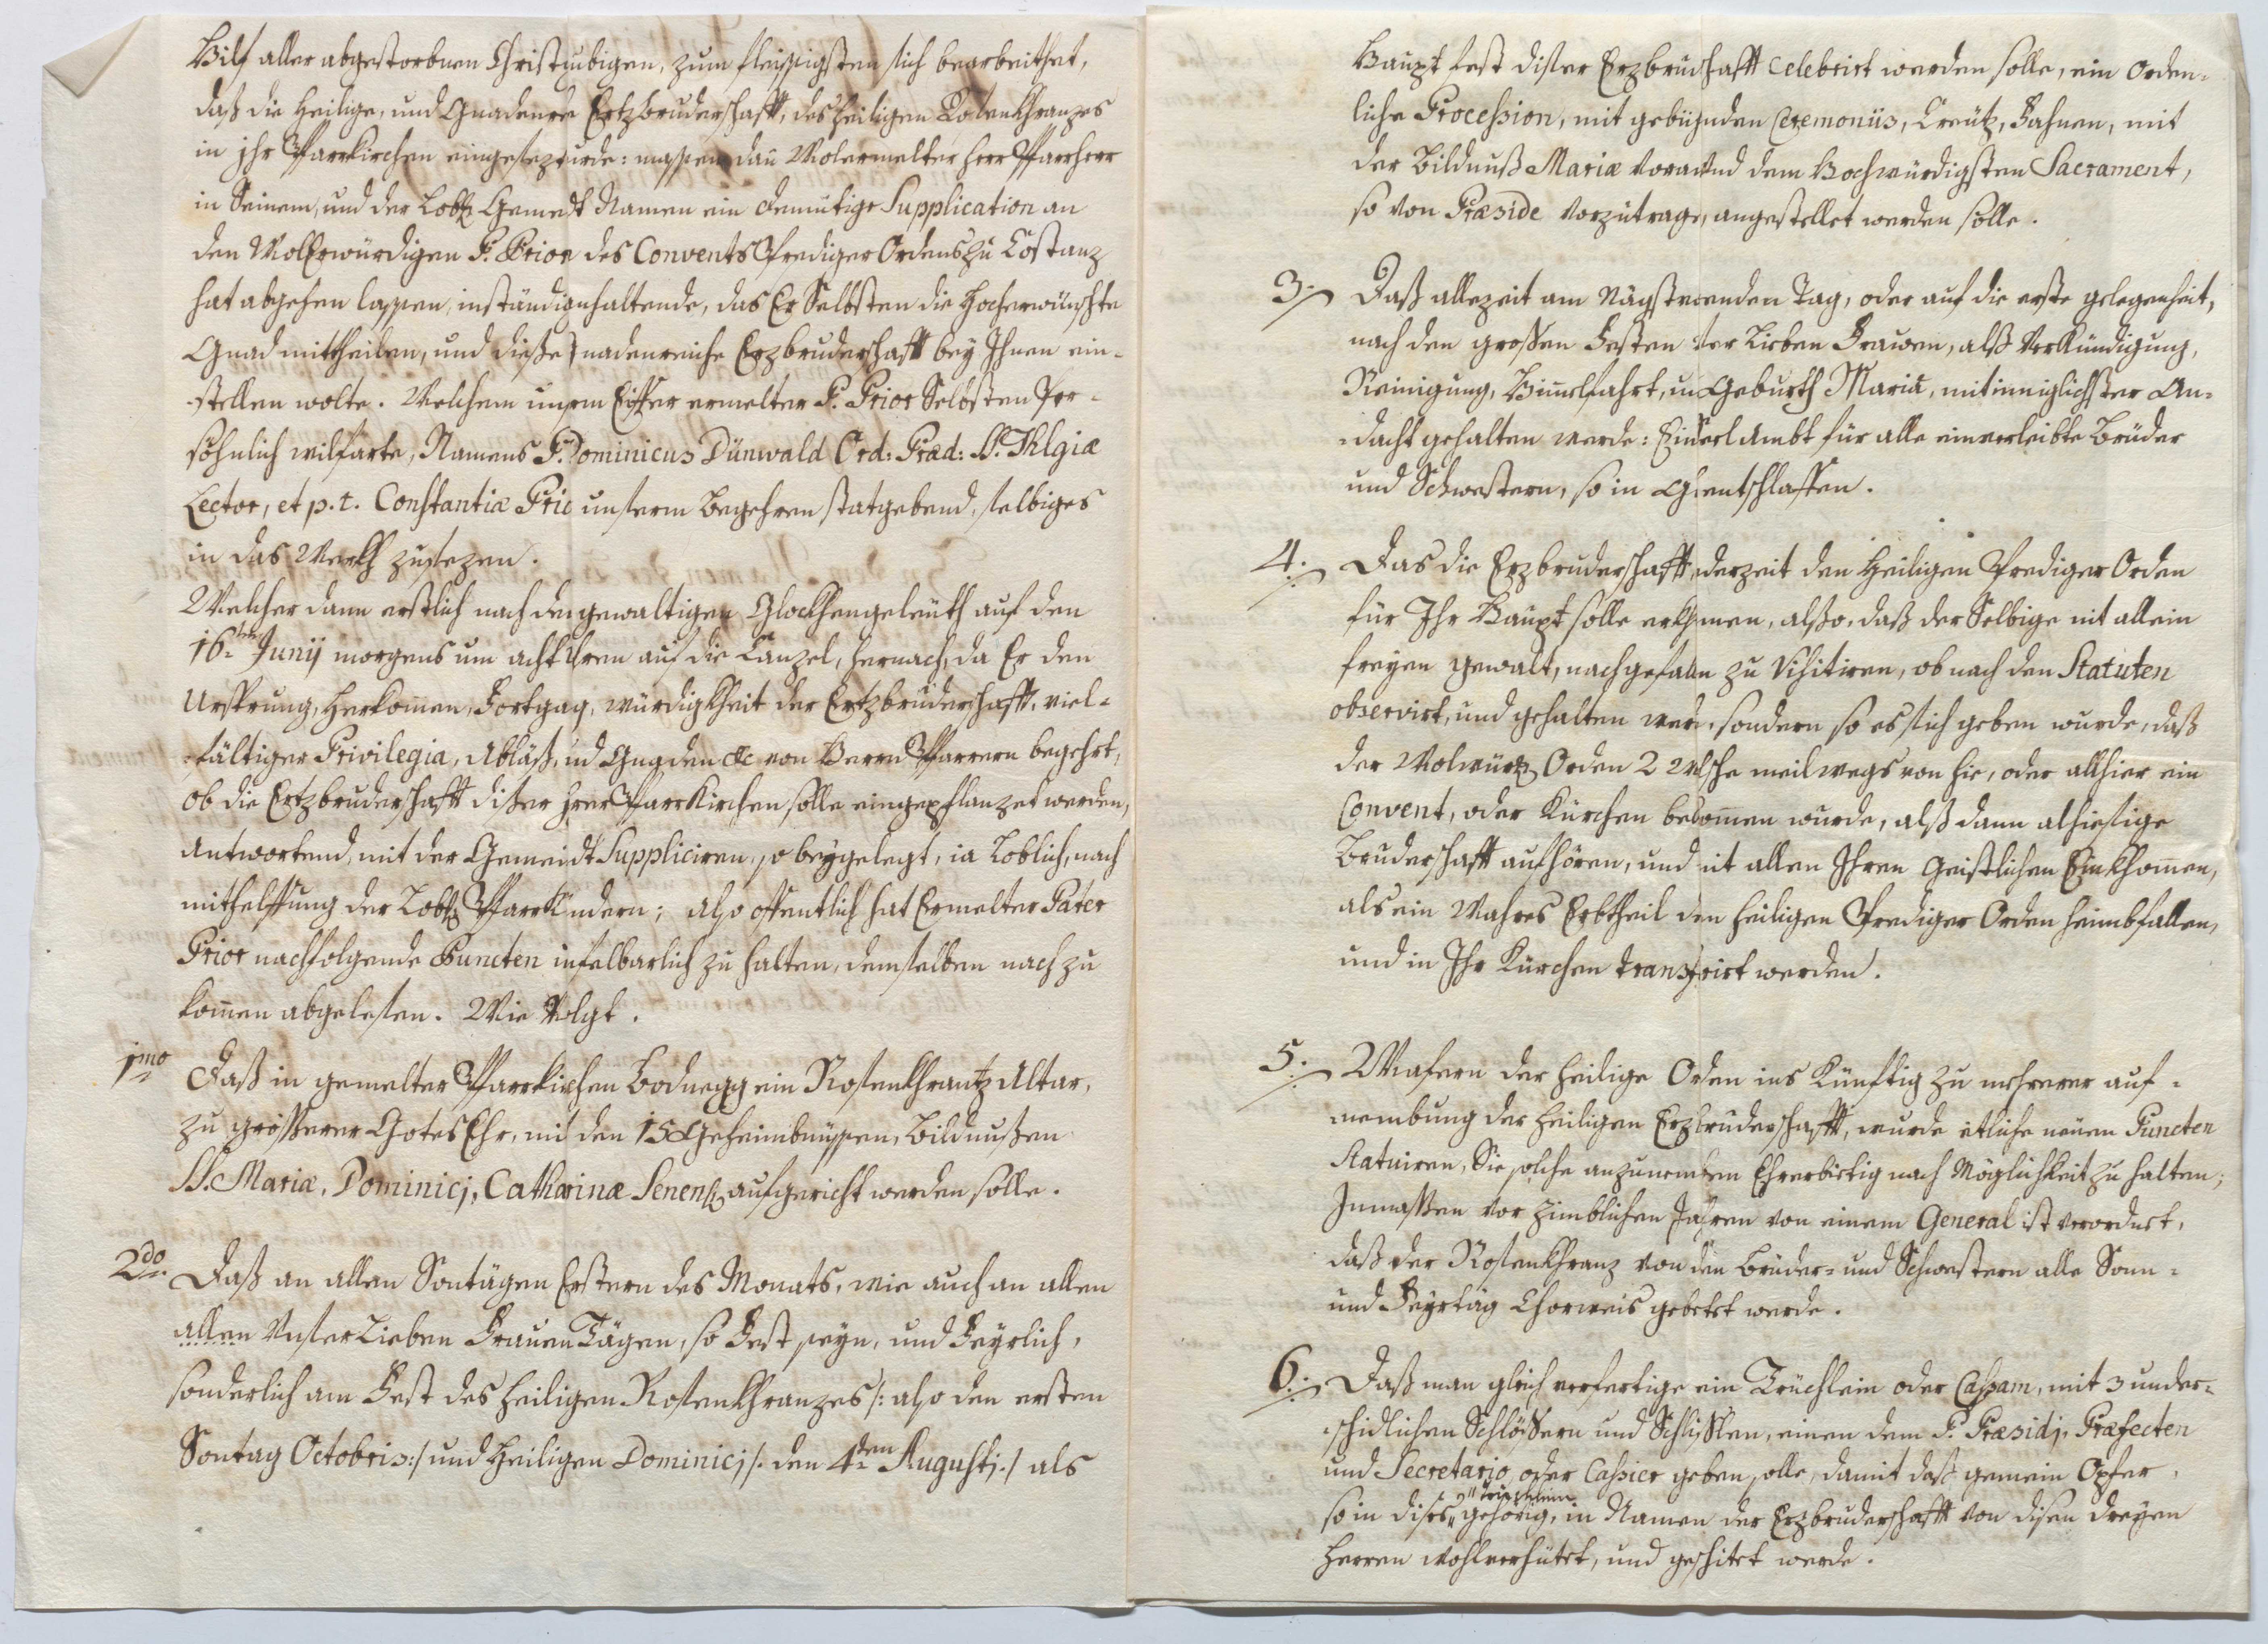 Hilf aller abgestorbnen Christgubigen, zum fleissigsten sich bearbeithet,
daß die Heilige, und Gnadenre Ertzbruderschafft, des heiligen Rosenkhranzes
in jhr Pfarrkirchen eingesezt urde: massen dañ Wolermelter Herr Pfarrherr
in Seinem, und der Lobl: Gemeidt Namen ein demütige Supplication an
den WolErwürdigen P. Prior des Convents Prediger Ordens zu Costanz
hat abgehen lassen, inständig anhaltende, das Er Selbsten die Hocherwünschte
Gnad mittheilen, und diese nadenreiche Erzbruderschafft bey Ihnen ein-
stellen wolte. Welchem unsrm Eiffer ermelter P. Prior Selbsten Per-
söhnlich wilfarte, Namens P. Dominicus Dünwald Ord: Præd: SS. Thlgiæ
Lector, et p. t. Constantiæ Prio unserm begehren statgebend, selbiges
in das Werkh zusezen.
Welcher dann erstlich nach dem gewaltigen Glockhengeleüth auf den
16ten Junij morgens um acht Uhren auf die Canzel, hernach, da Er den
Ursprung, Herkom̃en, Fortgag, würdigkheit der Ertzbruderschafft, viel-
fältiger Privilegia, Abläß, und Gnaden &c von Herrn Pfarrern begehrt,
ob die Ertzbruderschafft diser hrer PfarrKirchen solle eingepflanzet werden,
Antwortend, mit der Gemeidt Suppliciren, so beygelegt, ia loblich, nach
mithelffung der Lobl: PfarrKindern; also offentlich hat Ermelter Pater
Prior nachfolgende Puncten infelbarlich zu halten, demselben nach zu
kom̃en abgelesen. Wie Volgt.
1mo Daß in gemelter Pfarrkirchen Bodnegg ein Rosenkhrantz Altar,
zu grösserer Gotes Ehr, mit den 15 Geheimbnussen, Bildnußen
SS. Mariæ, Dominicj, Catharinæ Senens: aufgericht werden solle.
2do Daß an allen Sontägen Erstern des Monats, wie auch an allen
allen Unser Lieben Frauen Tägen, so Fest seyn, und Feyrlich,
sonderlich am Fest des heiligen Rosenkhranzes /: also den ersten
Sontag Octobris :/ und Heiligen Dominicj /. den 4den Augustj ./ als
Haupt fest diser Erzbrudschafft celebrirt werden solle, ein orden-
liche Procession, mit gebührnden Ceremoniis, Creütz, Fahnen, mit
der Bildnuß Mariæ voran und dem Hochwürdigsten Sacrament,
so von Præside vorzutrage, angestellet werden solle.
3. Daß allezeit am nägst enden Tag, oder auf die erste gelegenheit,
nach den grossen Festen der Lieben Frauen, alß Verkündigung,
Reinigung, Him̃elfahrt, und Geburth Mariä, mit inniglichster An-
dacht gehalten werde: Ein Seel Ambt für alle einverleibte Brüder
und Schwestern, so in G entschlaffen.
4. Das die Erzbruderschafft ederzeit den Heiligen Prediger Orden
für Ihr Haupt solle erkh nen, also, daß der Selbige nit allein
freyen gewalt, nach gefalln zu Visitiren, ob nach den Statuten
observirt, und gehalten werde, sondern so es sich geben wurde, daß
der Wolwürd: Orden 2 welsche meil wegs von hie, oder allhier ein
Convent, oder Kürchen bekom̃en wurde, alß dann alhiesige
Bruderschafft aufhören, und mit allen Ihren Geistlichen Einkhom̃en,
als ein Wahres Erbtheil dem Heiligen Prediger Orden heimbfallen,
und in Ihr Kürchen transferirt werden.
5. Wafern der Heilige Orden ins Künftig zu mehrerer auf-
nembung der heiligen Erzbruderschafft, wurde etliche neüen Puncten
Statuiren, Sie solche anzunemben Ehrerbietig nach Möglichkeit zu halten;
Inmassen vor zimblichen Jahren von einem General ist verordnet,
daß der Rosenkhranz von den Brüder- und Schwestern alle Sonn-
und Feyrtäg Chorweis gebetet werde.
6. Daß man gleich verfertige ein Trüchlein oder Cassam, mit 3 under-
schidlichen Schlössern und Schlisslen, einen dem P. Præsidj, Præfecten
und Secretario oder Cassier geben solle, damit daß gemein Opfer,
so in dises „Trüchlein gehörig, in Namen der Erzbruderschafft von disen dreyen
Herren wohlverhütet, und geschitet werde.